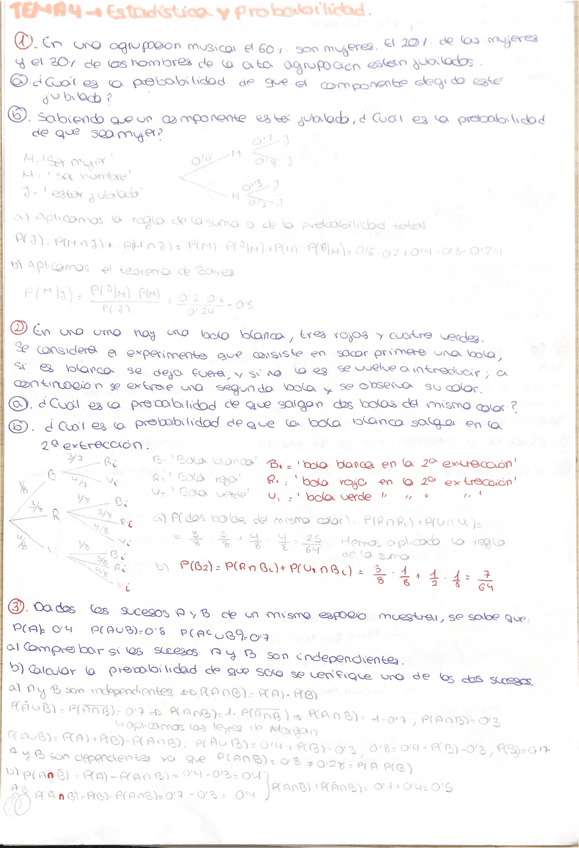 TEMA 4 → Estadística y Probabilidad.
①. En una agrupación musical el 60% son mujeres. El 20% de las mujeres
y el 30% de los hombres de la cita agrupación están jubilados.
ⓐ ¿Cuál es la probabilidad de que el componente elegido esté
jubilado?
ⓑ. Sabiendo que un componente esté jubilado, ¿Cuál es la probabilidad
de que sea mujer?
M: 'Ser mujer'
H: 'ser hombre'
J = 'estar jubilado'
0'6 M 0'2 J
0'8 J
H 0'3 J
0'7 J
a) Aplicamos la regla de la suma o de la probabilidad total
P(J) = P(M∩J) + P(H∩J) = P(M) · P(J/M) + P(H) · P(J/H) = 0'6 · 0'2 + 0'4 · 0'3 = 0'24
b) Aplicamos el teorema de Bayes
P(M/J) = P(J/M) · P(M) / P(J) = 0'2 · 0'6 / 0'24 = 0'5
②. En una urna hay una bola blanca, tres rojas y cuatro verdes.
Se considera el experimento que consiste en sacar primero una bola,
si es blanca se deja fuera, y si no lo es se vuelve a introducir; a
continuación se extrae una segunda bola y se observa su color.
ⓐ. ¿Cuál es la probabilidad de que salgan dos bolas del mismo color?
ⓑ. ¿Cuál es la probabilidad de que la bola blanca salga en la
2ª extracción.
B: 'Bola blanca' B₁ = 'bola blanca en la 2ª extracción'
R: 'Bola roja' R₁ = 'bola roja en la 2ª extracción'
V: 'Bola verde' V₁ = 'bola verde " " " '
1/8 B 3/7 R₁
4/7 V₁
3/8 R 1/8 B₁
3/8 R₁
4/8 V₁
4/8 V 1/8 B₁
3/8 R₁
4/8 V₁
a) P(dos bolas del mismo color) = P(R∩R₁) + P(V∩V₁) =
= 3/8 · 3/8 + 4/8 · 4/8 = 25/64 Hemos aplicado la regla
de la suma
b) P(B2) = P(R∩B₁) + P(V₁∩B₁) = 3/8 · 1/8 + 1/2 · 1/8 = 7/64
③. Dados los sucesos A y B de un mismo espacio muestral, se sabe que
P(A)= 0'4 P(A∪B)=0'8 P(Aᶜ∪Bᶜ)=0'7
a) Comprobar si los sucesos A y B son independientes.
b) Calcular la probabilidad de que solo se verifique uno de los dos sucesos.
a) A y B son independientes ↔ P(A∩B) = P(A) · P(B)
P(A̅∪B̅) = P(A̅∩̅B̅) = 0'7 → P(A∩B) = 1 - P(A̅∩̅B̅) → P(A∩B) = 1 - 0'7; P(A∩B) = 0'3
↳ aplicamos las leyes de Morgan
P(A∪B) = P(A) + P(B) - P(A∩B); P(A∪B) = 0'4 + P(B) - 0'3; 0'8 = 0'4 + P(B) - 0'3; P(B) = 0'7
A y B son dependientes ya que P(A∩B) = 0'3 ≠ 0'28 = P(A) P(B)
b) P(A∩B̅) = P(A) - P(A∩B) = 0'4 - 0'3 = 0'1
P(A̅∩B) = P(B) - P(A∩B) = 0'7 - 0'3 = 0'4 } P(A∩B̅) + P(A̅∩B) = 0'1 + 0'4 = 0'5